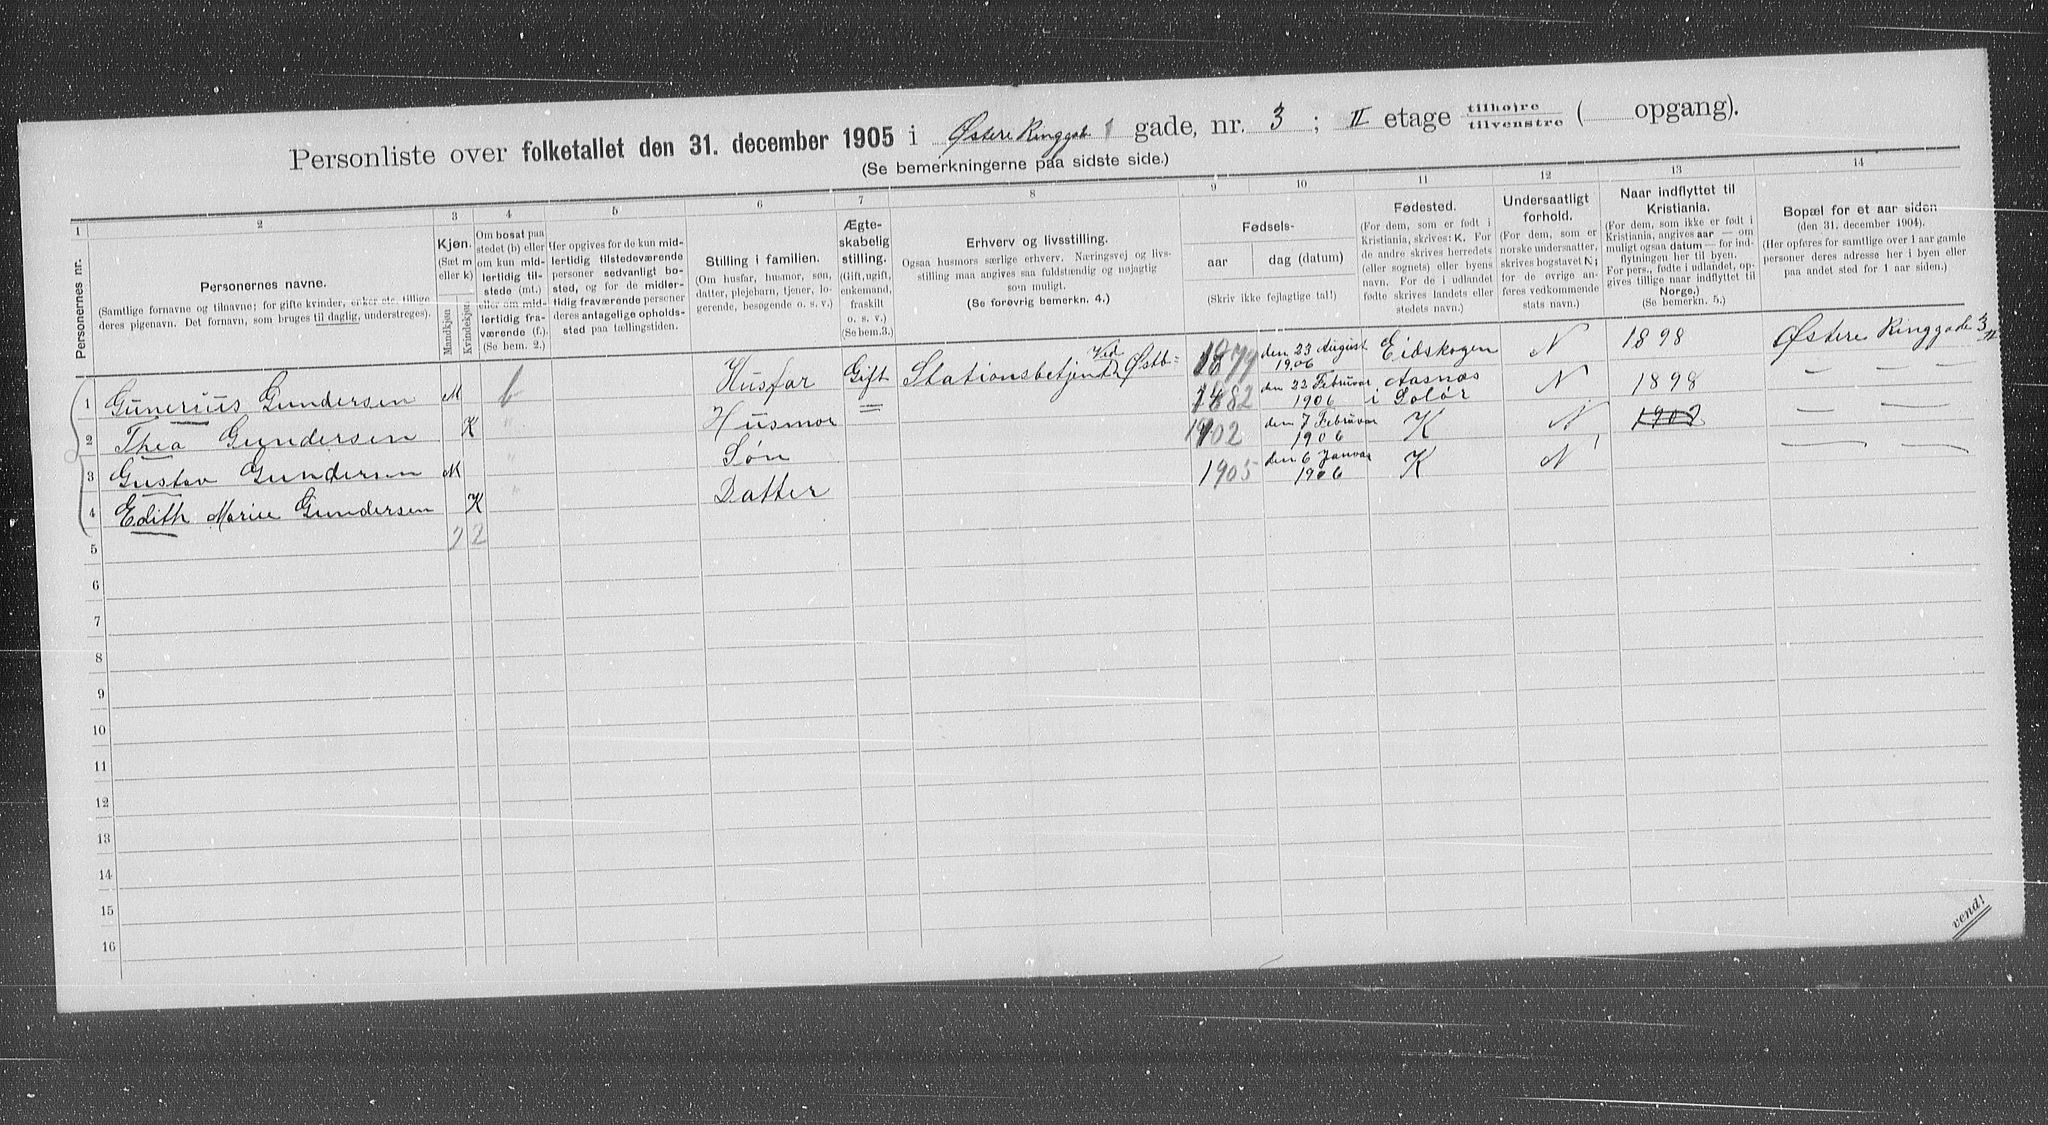 Personliste over folketallet den 31. december 1905 i Østere Ringgade gade, nr. 3 ; II etage tilhøjre tilvenstre ( opgang).
(Se bemerkningerne paa sidste side.)
1 2 3 4 5 6 7 8 9 10 11 12 13 14
Personernes nr.
Personernes navne.
(Samtlige fornavne og tilnavne; for gifte kvinder, enker etc. tillige
deres pigenavn. Det fornavn, som bruges til daglig, understreges).
Kjøn.
(Sæt m
eller k)
Mandkjøn
Kvindekjøn
Om bosat paa
stedet (b) eller
om kun mid-
lertidig til-
stede (mt.)
eller om mid-
lertidig fra-
værende (f.)
(Se bem. 2.)
Her opgives for de kun mid-
lertidig tilstedeværende
personer sedvanligt bo-
sted, og for de midler-
tidig fraværende personer
deres antagelige opholds-
sted paa tællingstiden.
Stilling i familien.
(Om husfar, husmor, søn,
datter, plejebarn, tjener, lo-
gerende, besøgende o. s. v.)
Ægte-
skabelig
stilling.
(Gift, ugift,
enkemand,
fraskilt
o. s. v.)
(Se bem.3.)
Erhverv og livsstilling.
Ogsaa husmors særlige erhverv. Næringsvej og livs-
stilling maa angives saa fuldstændig og nøjagtig
som muligt.
(Se forøvrig bemerkn. 4.)
Fødsels-
aar dag (datum)
(Skriv ikke fejlagtige tal!)
Fødested.
(For dem, som er født i
Kristiania, skrives: K. For
de andre skrives herredets
(eller sognets) eller byens
navn. For de i udlandet
fødte skrives landets eller
stedets navn.)
Undersaatligt
forhold.
(For dem, som er
norske undersaatter,
skrives bogstavet N;
for de øvrige an-
føres vedkommende
stats navn).
Naar indflyttet til
Kristiania.
(For dem, som ikke er født i
Kristiania, angives aar — om
muligt ogsaa datum — for ind-
flytningen her til byen.
For pers., fødte i udlandet, op-
gives tillige naar indflyttet til
Norge.)
(Se bemerkn. 5.)
Bopæl for et aar siden
(den 31. december 1904).
(Her opføres for samtlige over 1 aar gamle
personer deres adresse her i byen eller
paa andet sted for 1 aar siden.)
1 Gunerius Gundersen M b Husfar Gift Stationsbetjent Ved Østb= 1879 den 23 August 1906 Eidskogen N 1898 Østere Ringgade 3 II
2 Thea Gundersen K " Husmor = 1882 den 22 Februar 1906 Aasnæs i Solør N 1898 — —
3 Gustav Gundersen M " Søn 1902 den 7 Februar 1906 K N 1902 — —
4 Edith Marie Gundersen K " Datter 1905 den 6 Januar 1906 K N — —
5 2 2
6
7
8
9
10
11
12
13
14
15
16
vend!